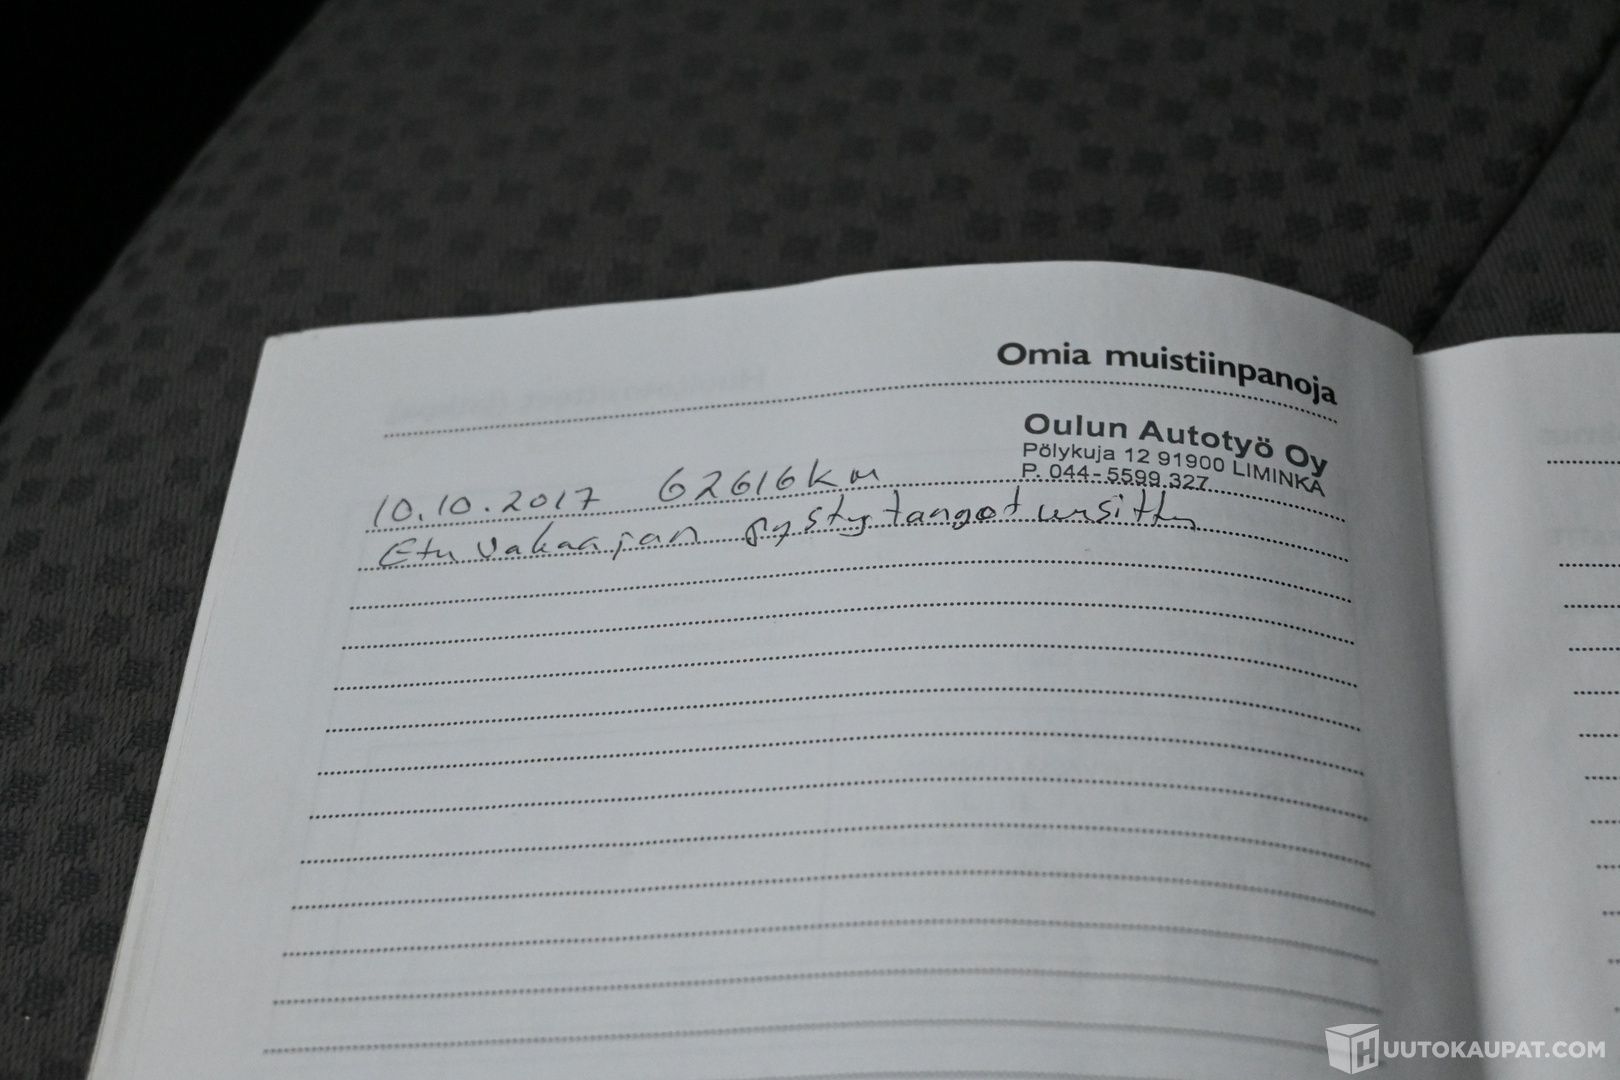 Omia muistiinpanoja
Oulun Autotyö Oy
Pölykuja 12 91900 LIMINKA
P. 044-5599 327
10.10.2017 62616km
Etu vakaajan pystytangot uusittu
HUUTOKAUPAT.COM